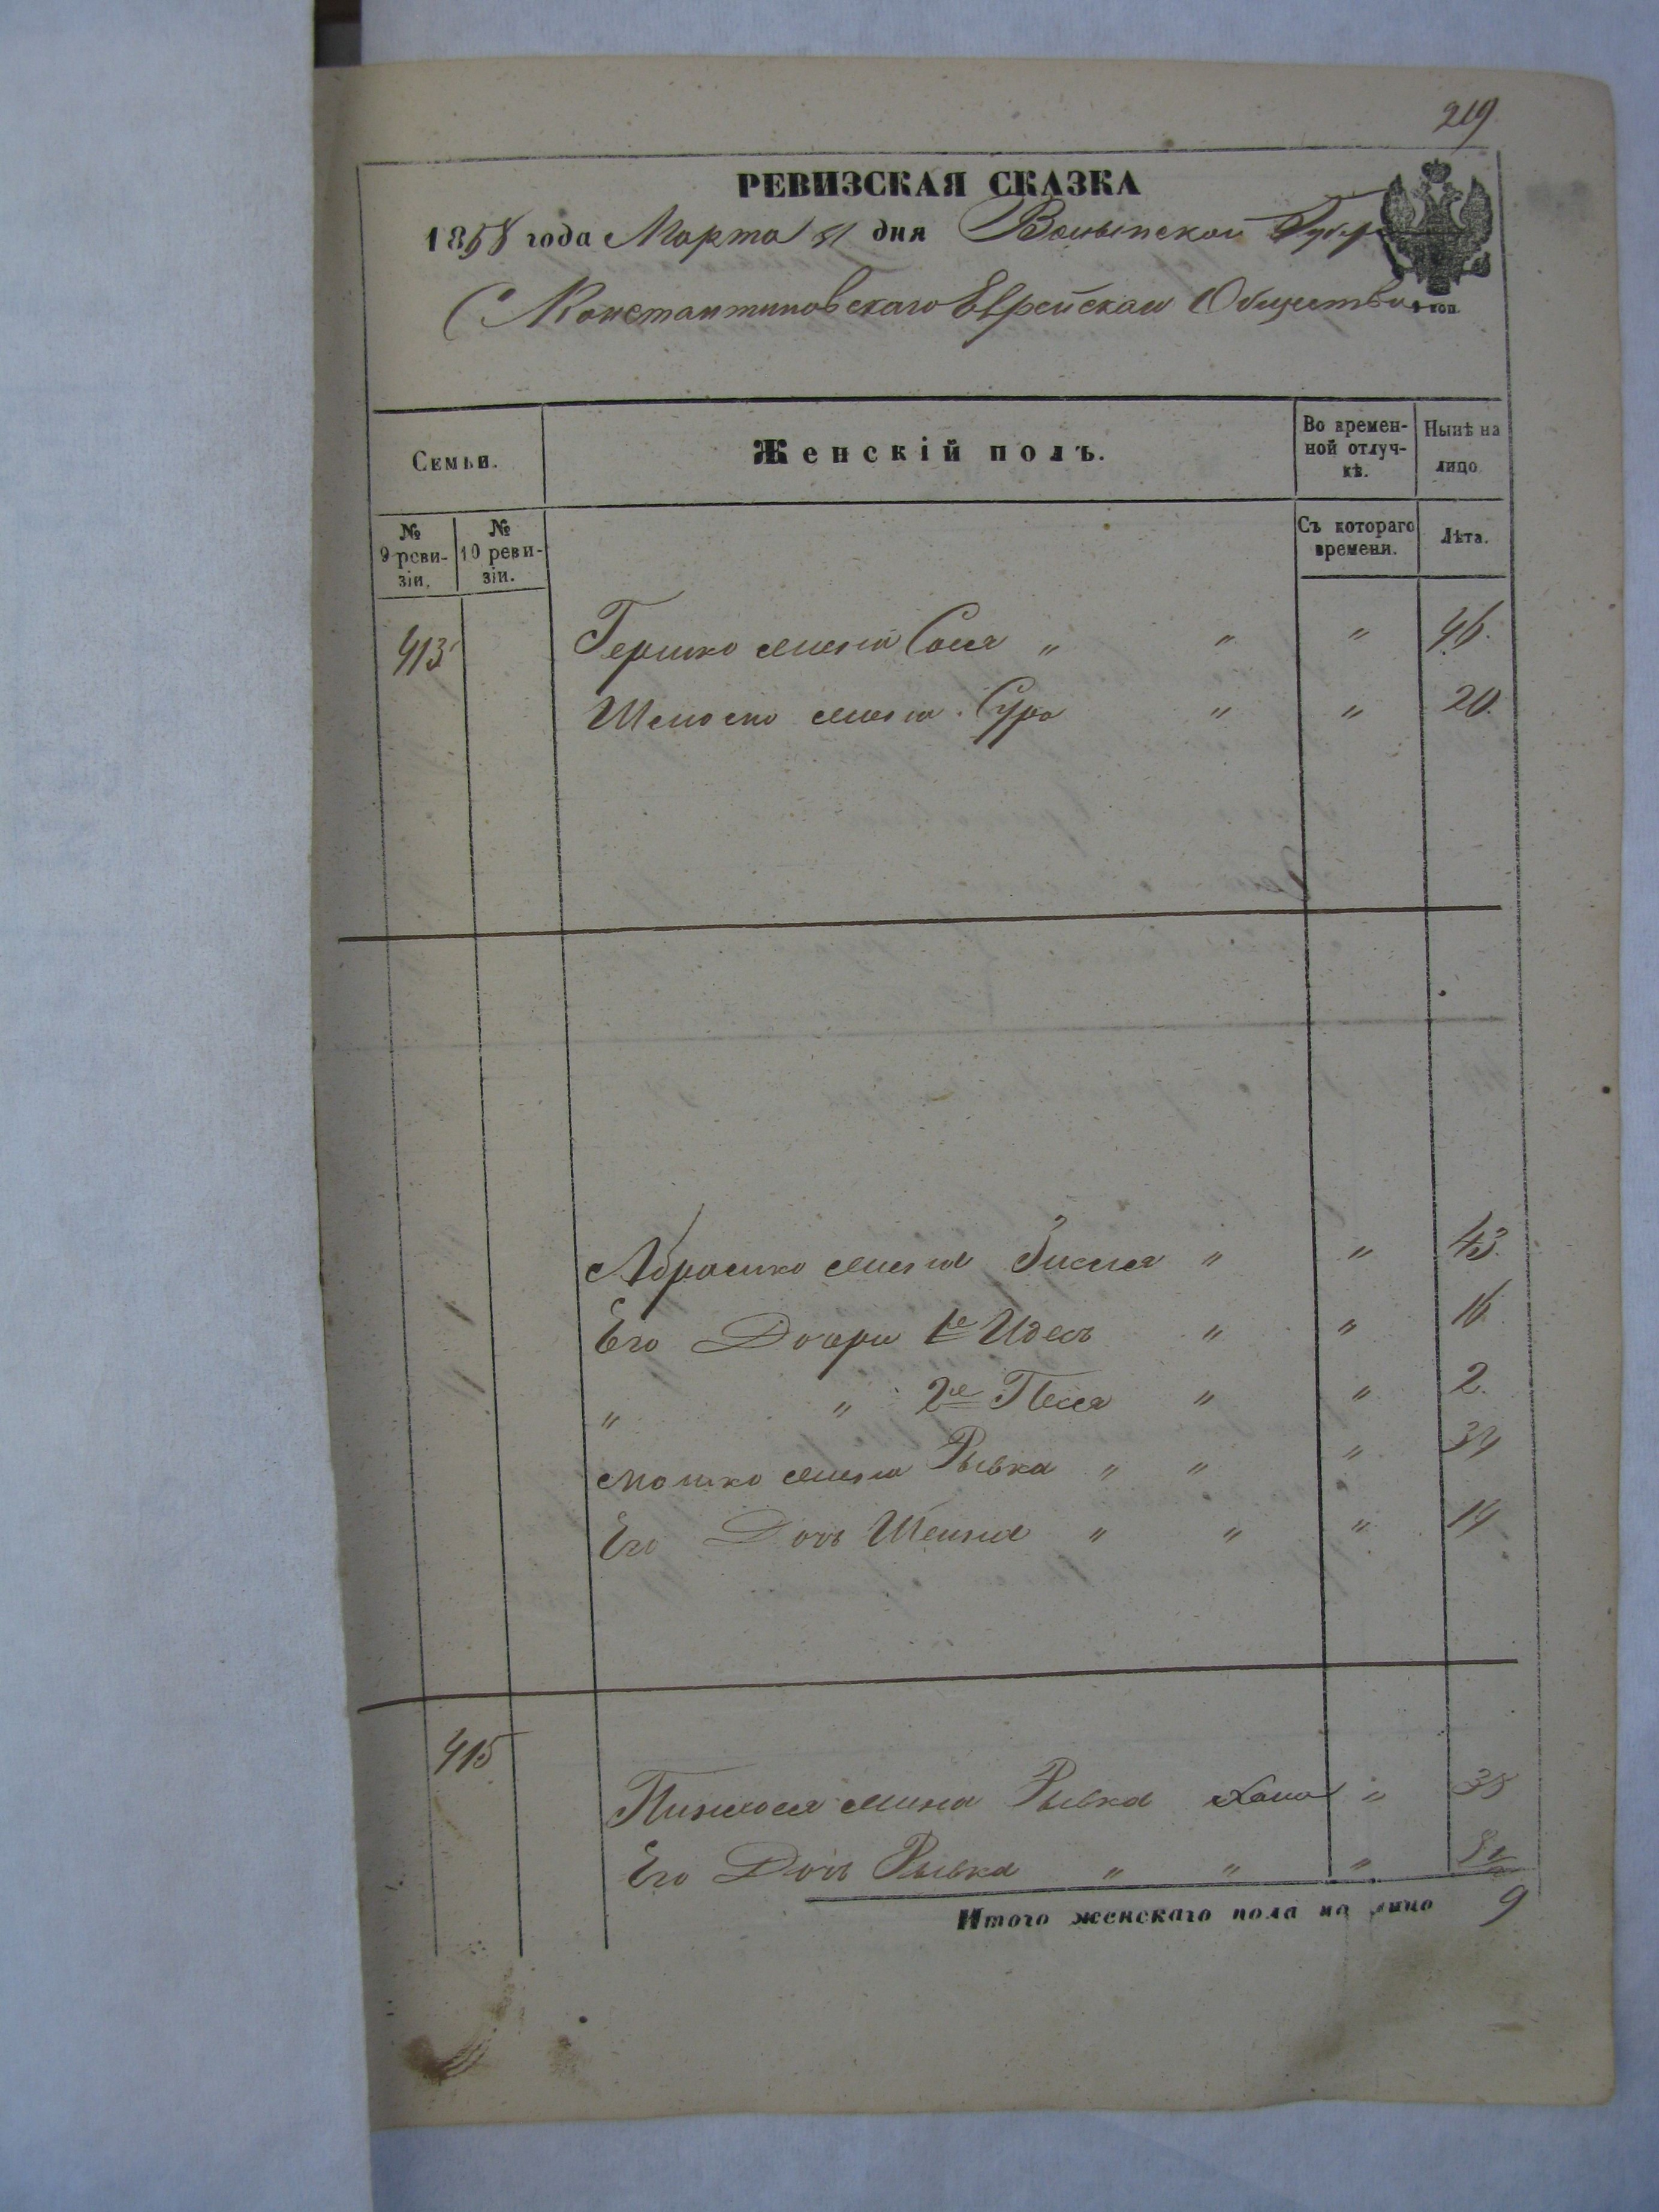 219
РЕВИЗСКАЯ СКАЗКА
1858 года Марта 31 дня Волынской Губер
С Константиновскаго Еврейскаго Общества
коп.
Семьи.
Женскій полъ.
Во времен-
ной отлуч-
кѣ.
Нынѣ на
лицо
№
9 реви-
зіи.
№
10 реви-
зіи.
Съ котораго
времени.
Лѣта.
413 Гершко жена Сося „ „ „ 46.
жена Сура „ „ 20.
Абрамко жена „ „ 43.
Его Дочери 1е Идесъ „ „ 16
„ „ 2е Песя „ „ 2.
Мошко жена Рывка „ „ „ 34
Его Дочь Шейна „ „ „ 14
415
Пинхоса жена Рывка Хана „ 35
Его Дочь Рывка „ „ „
Итого женскаго пола на лицо 9